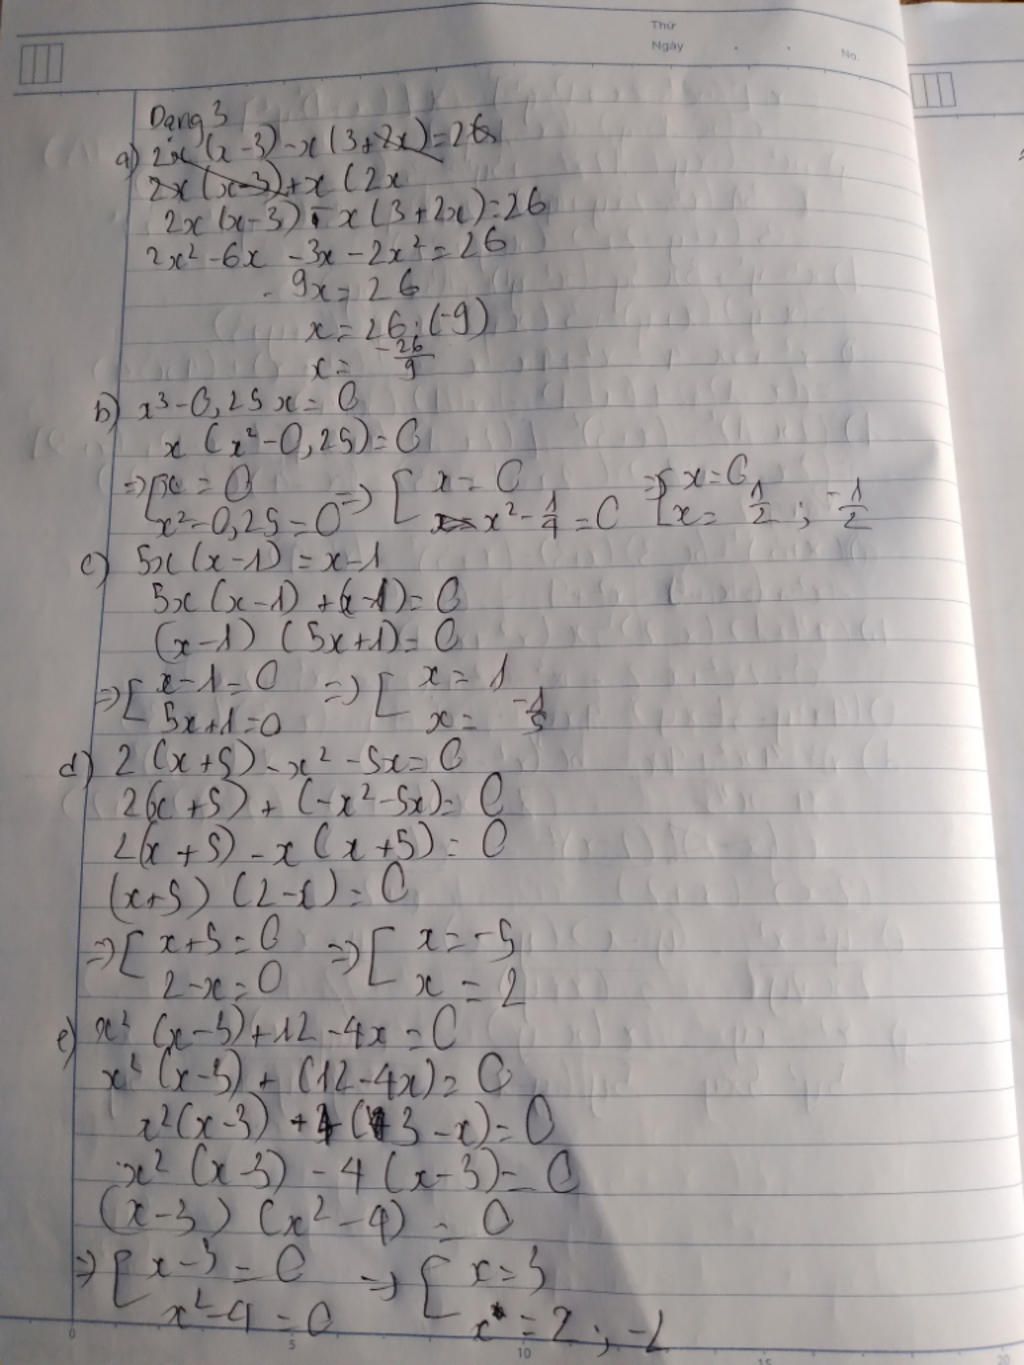 Thứ
Ngày
No.
Dạng 3
a) 2x (x-3) - x (3+2x) = 26
2x (x-3) + x (2x
2x (x-3) - x (3+2x) = 26
2x² - 6x - 3x - 2x² = 26
- 9x = 26
x = 26 : (-9)
x = -26/9
b) x³ - 0,25 x = 0
x (x² - 0,25) = 0
=> [ x = 0 => [ x = 0 => [ x = 0
x² - 0,25 = 0 x² - 1/4 = 0 x = 1/2 ; -1/2
c) 5x (x-1) = x-1
5x (x-1) + (x-1) = 0
(x-1) (5x+1) = 0
=> [ x-1 = 0 => [ x = 1
5x+1 = 0 x = -1/5
d) 2 (x+5) - x² - 5x = 0
2(x+5) + (-x² - 5x) = 0
2(x+5) - x (x+5) = 0
(x+5) (2-x) = 0
=> [ x+5 = 0 => [ x = -5
2-x = 0 x = 2
e) x² (x-3) + 12 - 4x = 0
x² (x-3) + (12-4x) = 0
x² (x-3) + 4 (3-x) = 0
x² (x-3) - 4 (x-3) = 0
(x-3) (x²-4) = 0
=> [ x-3 = 0 => [ x = 3
x²-4 = 0 x = 2 ; -2
0 5 10 15 20